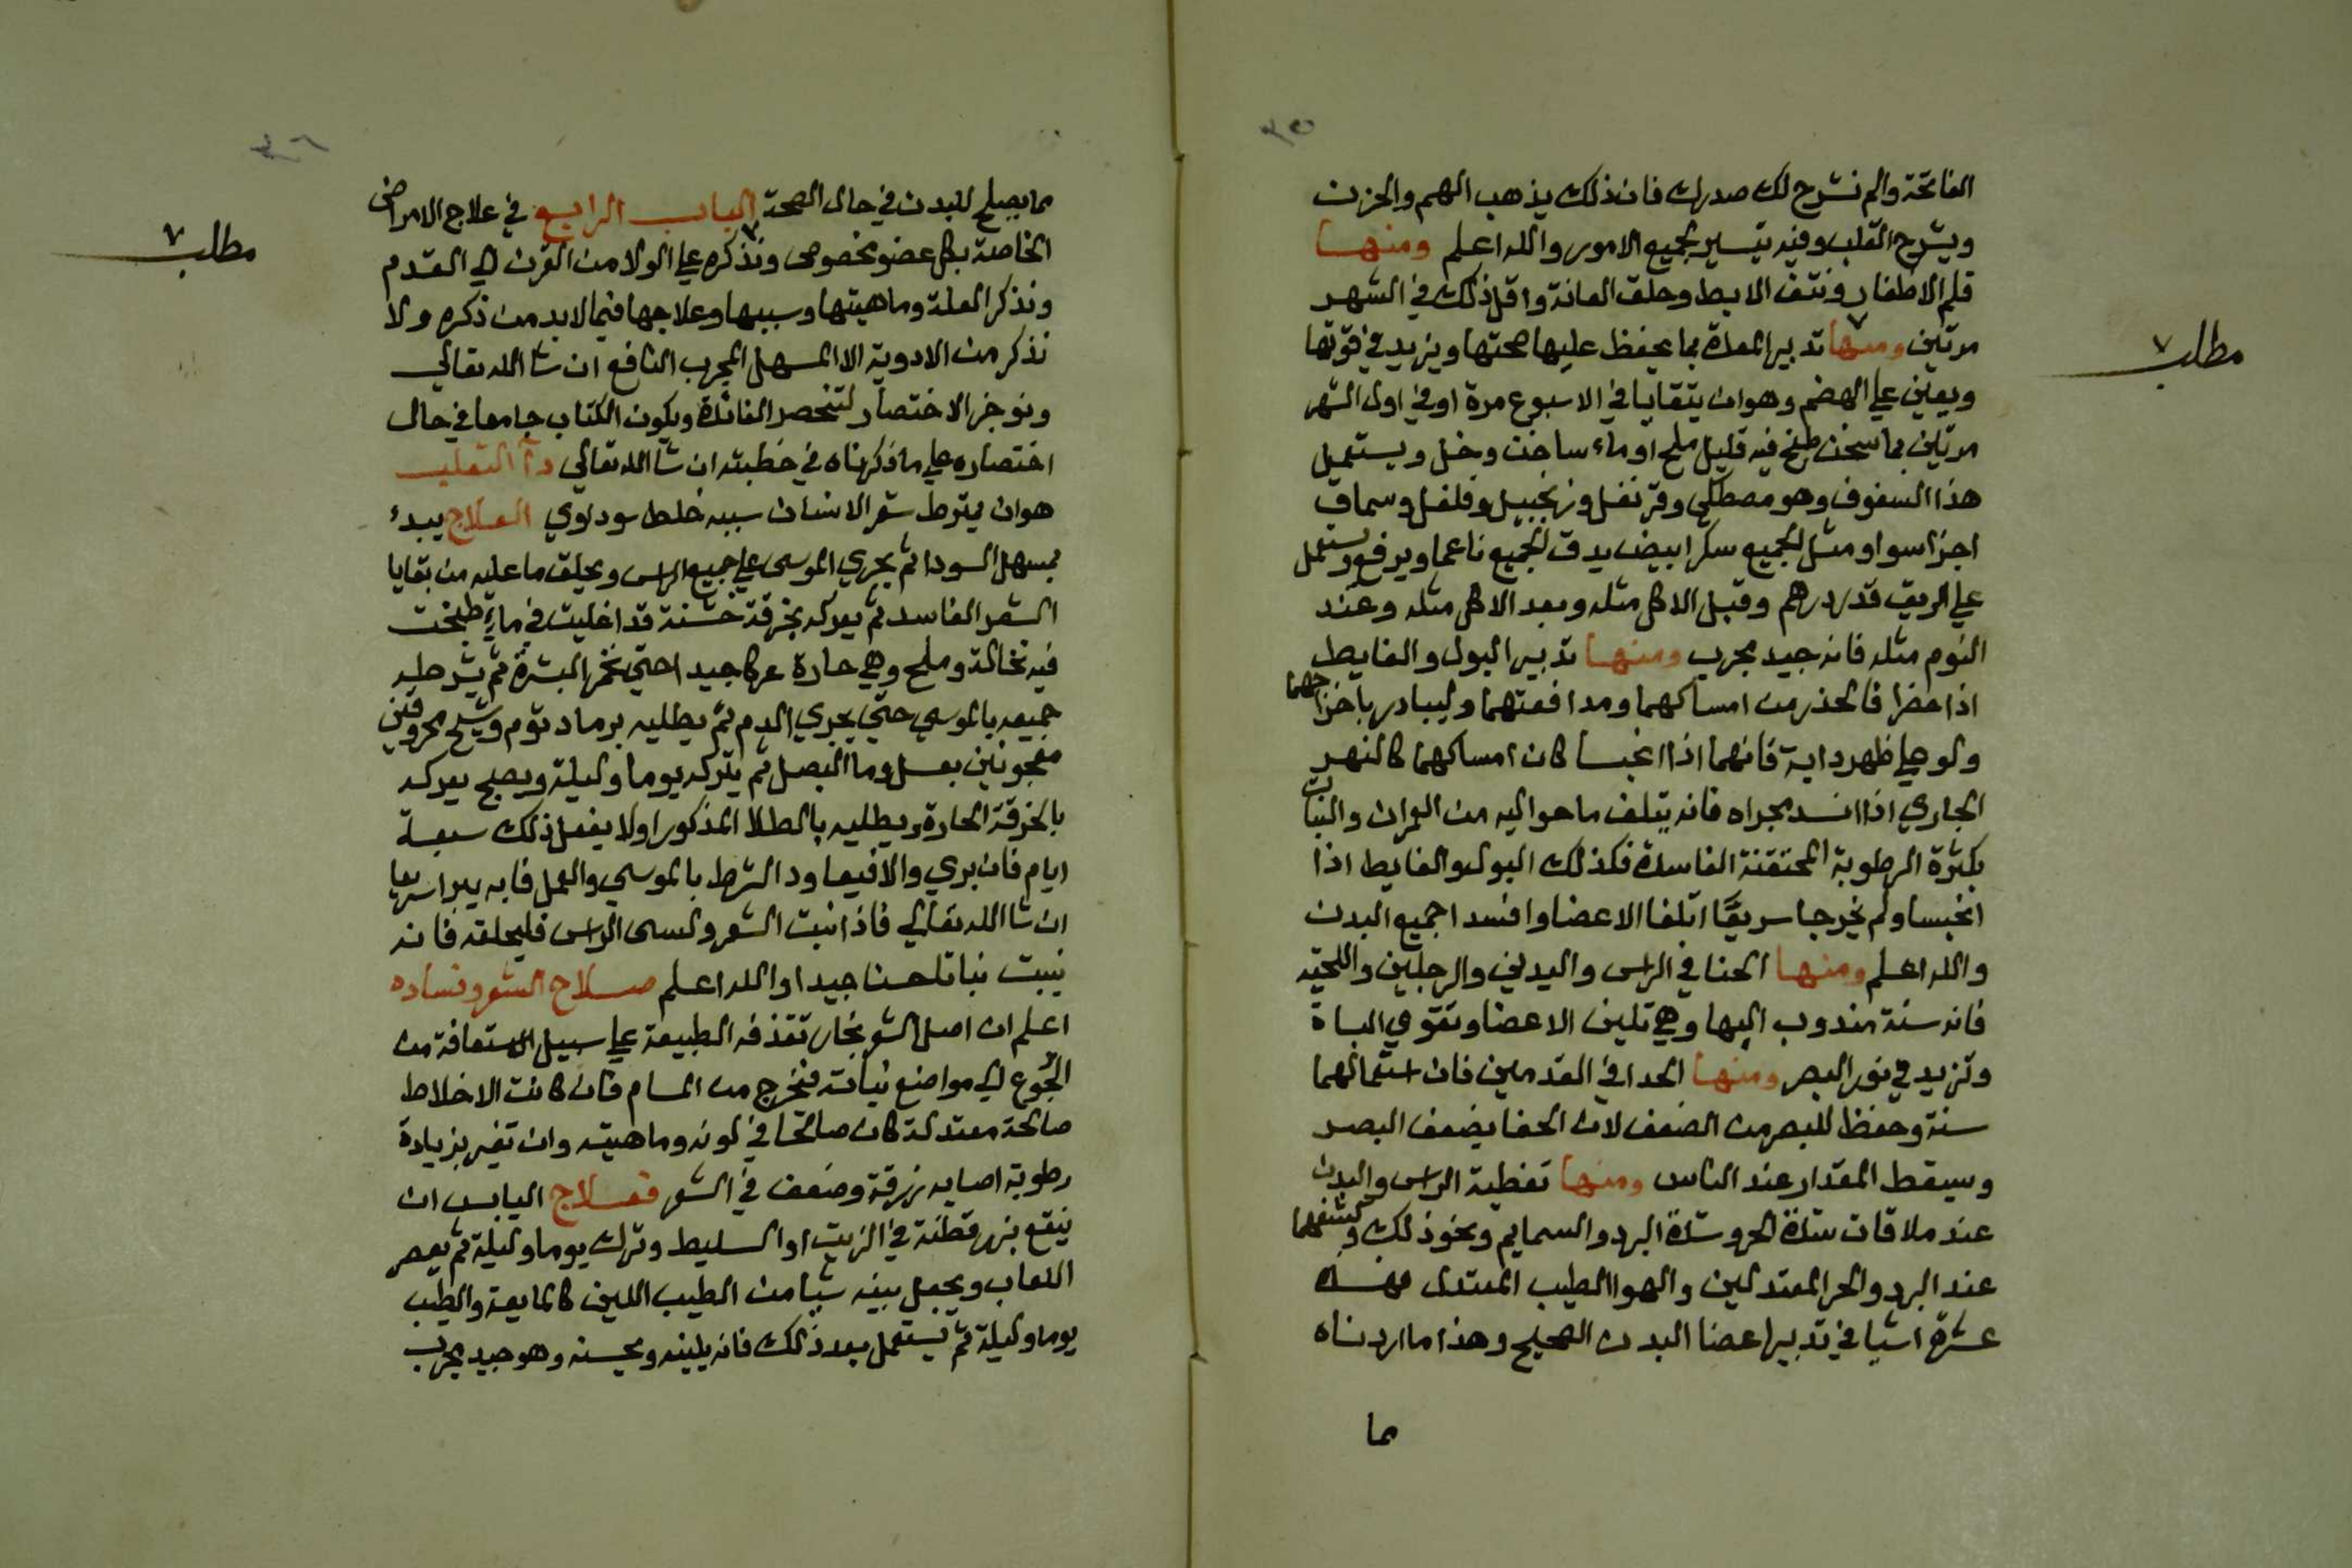 ٣٥
الفاتحة والم نشرح لك صدرك فان ذلك يذهب الهم والحزن
ويشرح القلب وفيه تيسير لجميع الامور والله اعلم ومنها
قلم الاظفار ونتف الابط وحلق العانة واقل ذلك في الشهر
مرتين ومنها تدبير المعدة بما يحفظ عليها صحتها ويزيد في قوتها
مطلب
ويعين علي الهضم وهو ان يتقايا في الاسبوع مرة او في اول الشهر
مرتين بما سخن طبخ فيه قليل ملح او ماء ساخن وخل ويستعمل
هذا السفوف وهو مصطكي وقرنفل وزنجبيل وفلفل وسماق
اجزا سوا ومثل الجميع سكر ابيض يدق الجميع ناعما ويرفع ويستعمل
علي الريق قدر درهم وقبل الاكل مثله وبعد الاكل مثله وعند
النوم مثله فانه جيد مجرب ومنها تدبير البول والغايط
اذا حضرا فالحذر من امساكهما ومدافعتهما وليبادر باخراجهما
ولو علي ظهر دابة فانهما اذا انحبسا كان امساكهما كالنهر
الجاري اذا انسد مجراه فانه يتلف ما حواليه من العمران والنبات
بكثرة الرطوبة المحتقنة الفاسدة فكذلك البول والغايط اذا
انحبسا ولم يخرجا سريعا اتلفا الاعضا وافسدا جميع البدن
والله اعلم ومنها الحنا في الراس واليدين والرجلين واللحية
فانه سنة مندوب اليها وهي تلين الاعضا وتقوي الباة
وتزيد في نور البصر ومنها الحدا في القدمين فان استعمالهما
سنة وحفظ للبصر من الضعف لان الحفا يضعف البصر
وسيقط المقدار عند الناس ومنها تغطية الراس والبدن
عند ملاقات شدة الحر وشدة البرد والسمايم ونحو ذلك وكشفهما
عند البرد والحر المعتدلين والهوا الطيب المعتدل فهذه
عشرة اشيا في تدبير اعضا البدن الصحيح وهذا ما اردناه
مما
٣٦
مما يصلح للبدن في حال الصحة الباب الرابع في علاج الامراض
مطلب
الخاصة بكل عضو مخصوص ونذكره علي الولا من القرن الي القدم
ونذكر العلة وماهيتها وسببها وعلاجها فيما لابد من ذكره ولا
نذكر من الادوية الا السهل المجرب النافع ان شا الله تعالي
ونوجز الاختصار لتنحصر الفائدة ويكون الكتاب جامعا في حال
اختصاره علي ما ذكرناه في خطبته ان شا الله تعالي دآ الثعلب
هو ان يتمرط شعر الانسان سببه خلط سوداوي العلاج يبدء
بمسهل السودا ثم يجري الموسى علي جميع الراس ويحلق ما عليه من بقايا
الشعر الفاسد ثم يعركه بخرقة خشنة قد اغليت في ماء طبخت
فيه نخالة وملح وهي حارة عركا جيدا حتي تحمر البشرة ثم يشرطه
جميعه بالموسي حتي يجري الدم ثم يطليه برماد ثوم وشيح محروقين
معجونين بعسل وما البصل ثم يتركه يوما وليلة ويصبح يعركه
بالخرقة الحارة ويطليه بالطلا المذكور اولا يفعل ذلك سبعة
ايام فان بري والا فيعاود الشرط بالموسي والعمل فانه يبرا سريعا
ان شا الله تعالي فاذا نبت الشعر وكسى الراس فليحلقه فانه
ينبت نباتا حسنا جيدا والله اعلم صلاح الشعر وفساده
اعلم ان اصل الشعر بخار تقذفه الطبيعة علي سبيل الاستعافة من
الجوع الي مواضع نباته فتخرج من المسام فان كانت الاخلاط
صالحة معتدلة كان صالحا في لونه وماهيته وان تغير بزيادة
رطوبة اصابه زرقة وضعف في الشعر فعلاج اليابس ان
ينقع بزر قطنة في الزيت او السليط وترك يوما وليلة ثم يعصر
اللعاب ويجعل بينه شيا من الطيب اللين كالمايعة والطيب
يوما وليلة ثم يستعمل بعد ذلك فانه يلينه ويحسنه وهو جيد مجرب